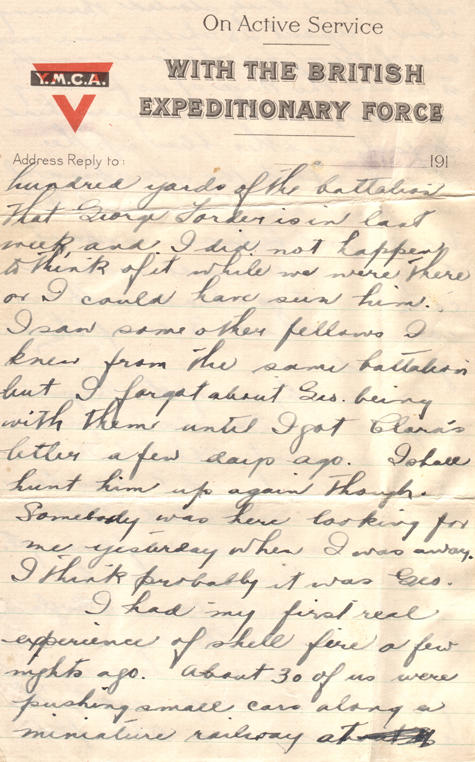 On Active Service
WITH THE BRITISH
Y.M.C.A.
EXPEDITIONARY FORCE
Address Reply to:
191
hundred yards of the battalion
that George is in last
week and I did not happen
to think of it while we were there
or I could have seen him.
I saw some other fellows I
knew from the same battalion
but I forgot about Geo. being
with them until I got Clara's
letter a few days ago. I shall
hunt him up again though.
Somebody was here looking for
me yesterday when I was away.
I think probably it was Geo.
I had my first real
experience of shell fire a few
nights ago. About 30 of us were
pushing small cars along a
miniature railway